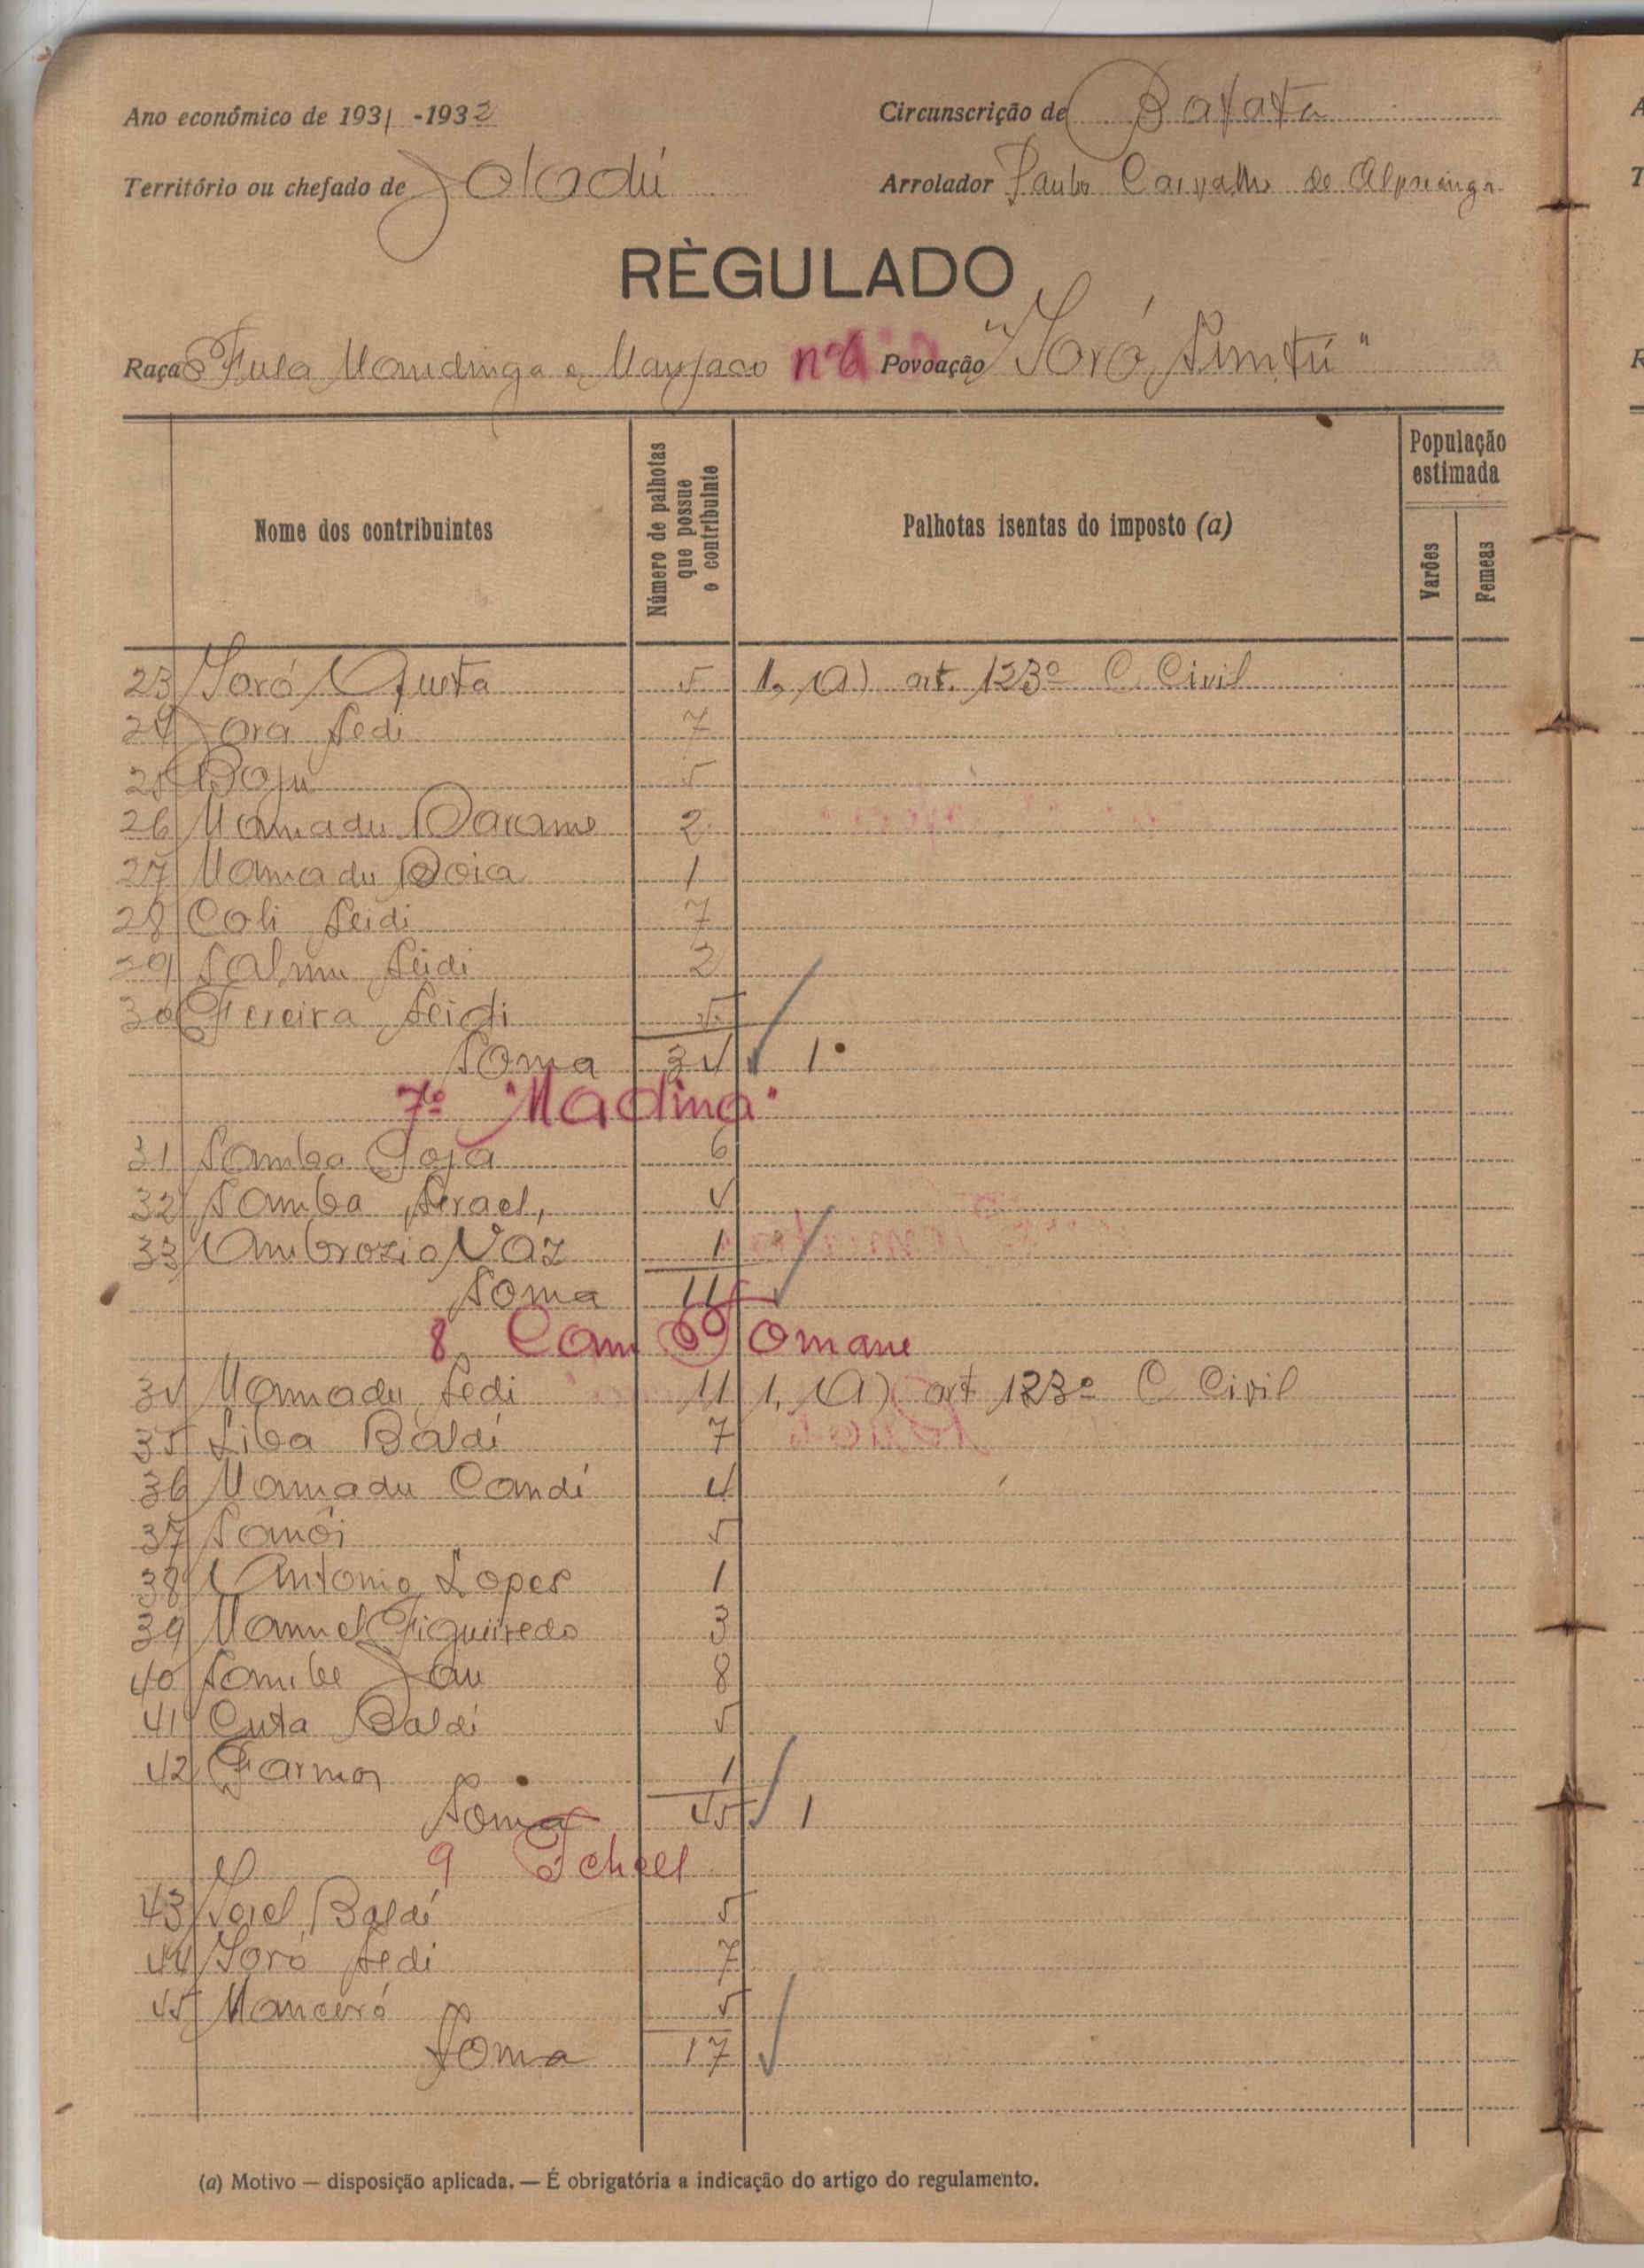 Ano económico de 1931 -1932 Circunscrição de Bafatá
Território ou chefado de Joladú Arrolador Paulo Carvalho de
RÈGULADO
Raça Fula Mandinga e Manjaco nº 6 Povoação "Soró Sintú"
Nome dos contribuintes
Número de palhotas que possue o contribuinte
Palhotas isentas do imposto (a)
População estimada
Varões
Femeas
23 Soró Queta 5 1, (A) art. 123º C. Civil
24 Jora Sedi 7
25 5
26 Mamadu Darame 2
27 Mamadu 1
28 Coli Seidi 7
29 Seidi 2
30 Fereira Seidi 5
Soma 34 1
7º "Madina"
31 Samba 6
32 Samba 4
33 Ambrozio Vaz 1
Soma 11
8 Cam Tomane
34 Mamadu Sedi 11 1, (A) art 123º C Civil
35 Liba Baldí 7
36 Mamadu Candí 4
37 Samôi 5
38 Antonio Lopes 1
39 Manuel Figueiredo 3
40 Jau 8
41 Cuta Baldé 5
42 1
Soma 45 1
9 Tchael
43 Baldé 5
44 Soró Sedi 7
45 5
Soma 17
(a) Motivo — disposição aplicada. — É obrigatória a indicação do artigo do regulamento.